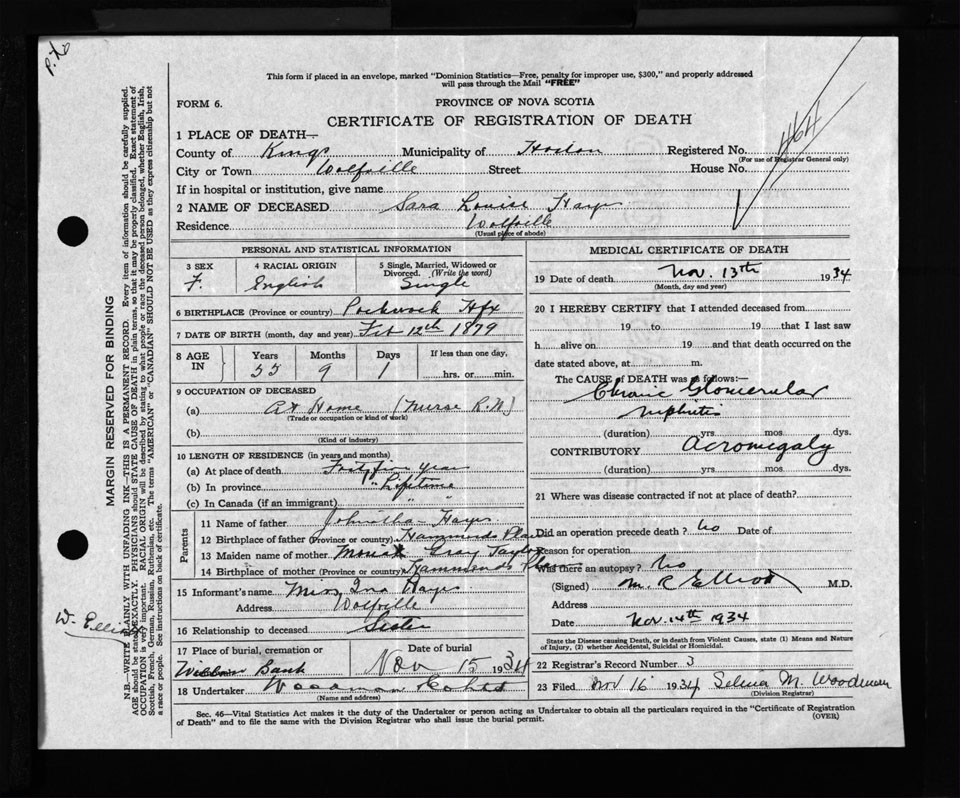 P.to
This form if placed in an envelope, marked "Dominion Statistics—Free, penalty for improper use, $300," and properly addressed
will pass through the Mail "FREE"
FORM 6.
PROVINCE OF NOVA SCOTIA
CERTIFICATE OF REGISTRATION OF DEATH
464
1 PLACE OF DEATH—
County of Kings Municipality of Horton Registered No.
(For use of Registrar General only)
City or Town Wolfville Street House No.
If in hospital or institution, give name
2 NAME OF DECEASED Sara Louise Hayes
Residence Wolfville
(Usual place of abode)
PERSONAL AND STATISTICAL INFORMATION
3 SEX 4 RACIAL ORIGIN 5 Single, Married, Widowed or Divorced. (Write the word)
F. English Single
6 BIRTHPLACE (Province or country) Pockwock Hfx
7 DATE OF BIRTH (month, day and year) Feb 12th 1879
8 AGE IN Years Months Days If less than one day,
55 9 1 hrs. or min.
9 OCCUPATION OF DECEASED
(a) At Home (Nurse R.N)
(Trade or occupation or kind of work)
(b)
(Kind of industry)
10 LENGTH OF RESIDENCE (in years and months)
(a) At place of death Forty five years
(b) In province " Lifetime
(c) In Canada (if an immigrant) " "
Parents
11 Name of father Hayes
12 Birthplace of father (Province or country) Hammonds Plains
13 Maiden name of mother Gray Taylor
14 Birthplace of mother (Province or country) Hammonds Plains
15 Informant's name Miss Ina Hayes
Address Wolfville
16 Relationship to deceased Sister
17 Place of burial, cremation or Date of burial
Willow Bank Nov 15 1934
18 Undertaker
(Name and address)
MEDICAL CERTIFICATE OF DEATH
19 Date of death Nov. 13th 1934
(Month, day and year)
20 I HEREBY CERTIFY that I attended deceased from
19 to 19 that I last saw
h alive on 19 and that death occurred on the
date stated above, at m.
The CAUSE of DEATH was as follows:—
Chronic Glomerular
nephritis
(duration) yrs. mos. dys.
CONTRIBUTORY Acromegaly
(duration) yrs. mos. dys.
21 Where was disease contracted if not at place of death?
Did an operation precede death? No Date of
Reason for operation
Was there an autopsy? No
(Signed) M. R. Elliott M.D.
Address
Date Nov. 14th 1934
State the Disease causing Death, or in death from Violent Causes, state (1) Means and Nature
of Injury, (2) whether Accidental, Suicidal or Homicidal.
22 Registrar's Record Number 3
23 Filed Nov 16 1934 Selina M. Woodman
(Division Registrar)
Sec. 46—Vital Statistics Act makes it the duty of the Undertaker or person acting as Undertaker to obtain all the particulars required in the "Certificate of Registration
of Death" and to file the same with the Division Registrar who shall issue the burial permit.
(OVER)
MARGIN RESERVED FOR BINDING
N.B.—WRITE PLAINLY WITH UNFADING INK—THIS IS A PERMANENT RECORD. Every item of information should be carefully supplied.
AGE should be stated EXACTLY. PHYSICIANS should STATE CAUSE OF DEATH in plain terms, so that it may be properly classified. Exact statement of
OCCUPATION is very important. RACIAL ORIGIN will be described by stating to what people or race the deceased person belonged, whether English, Irish,
Scottish, French, German, Russian, Ruthenian, etc. The terms "AMERICAN" or "CANADIAN" SHOULD NOT BE USED as they express citizenship but not
a race or people. See instructions on back of certificate.
W. Elliott